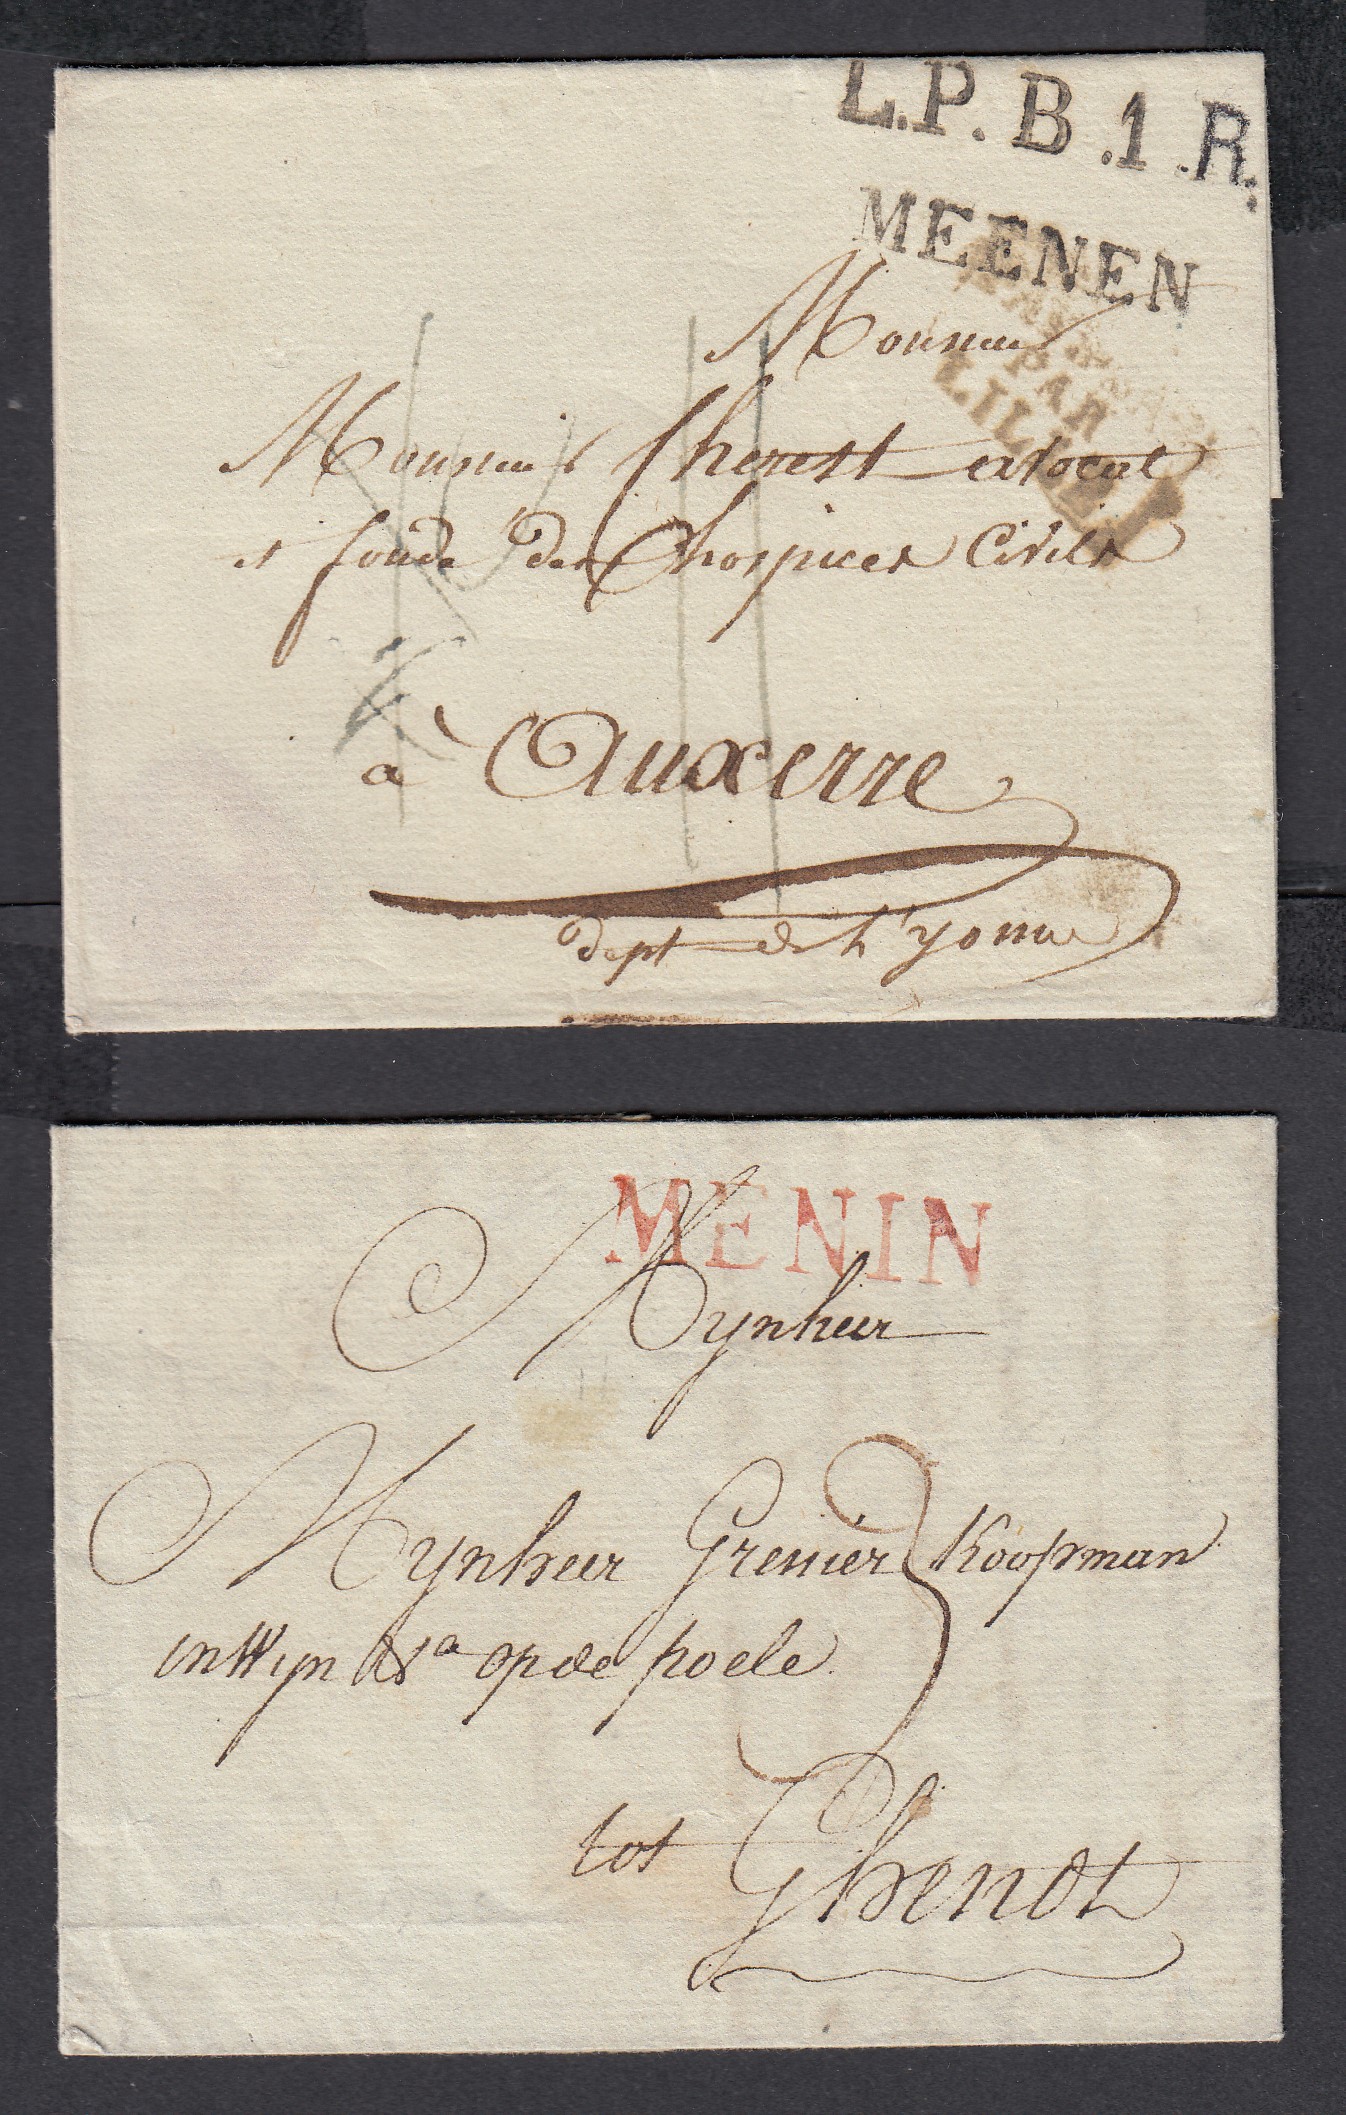 L.P.B.1.R.
MEENEN
PAR
LILLE
Monsieur
Monsieur Cherest avocat
et fondé des hospices Civils
à Auxerre
dept de L'yonne
MENIN
Mynheer
Mynheer Grenier Koopman
in Wyn &a op de poele
tot Ghendt